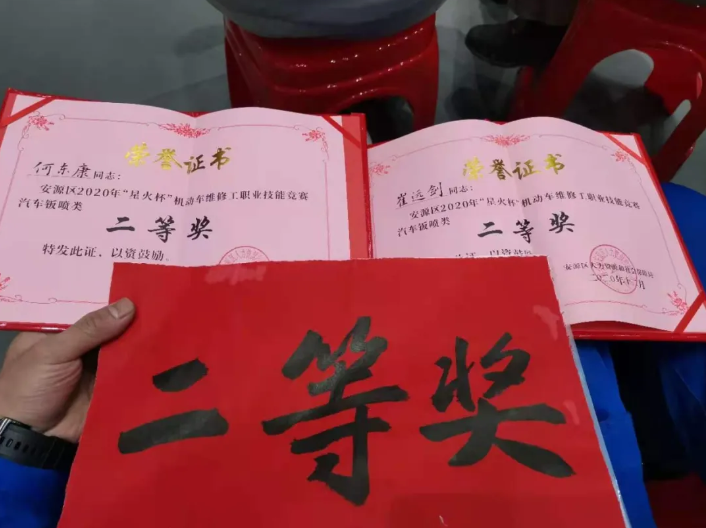 荣誉证书
何东康同志：
安源区2020年“星火杯”机动车维修工职业技能竞赛
汽车钣喷类
二等奖
特发此证，以资鼓励。
荣誉证书
崔远剑同志：
安源区2020年“星火杯”机动车维修工职业技能竞赛
汽车钣喷类
二等奖
此证，以资鼓励
安源区人力资源和社会保障局
二等奖